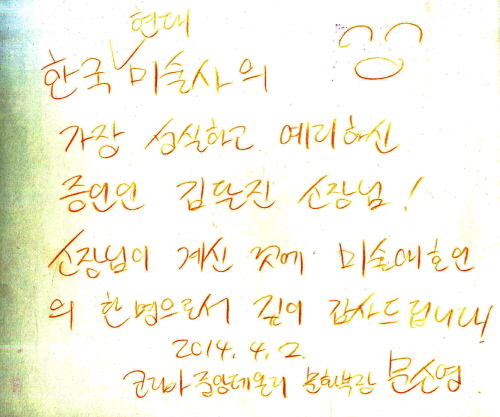 현대
한국 미술사의
가장 성실하고 예리하신
증인인 김달진 소장님!
소장님이 계신 것에 미술애호인
의 한 명으로서 깊이 감사드립니다!
2014. 4. 2.
코리아 중앙데일리 문화부장 문소영.